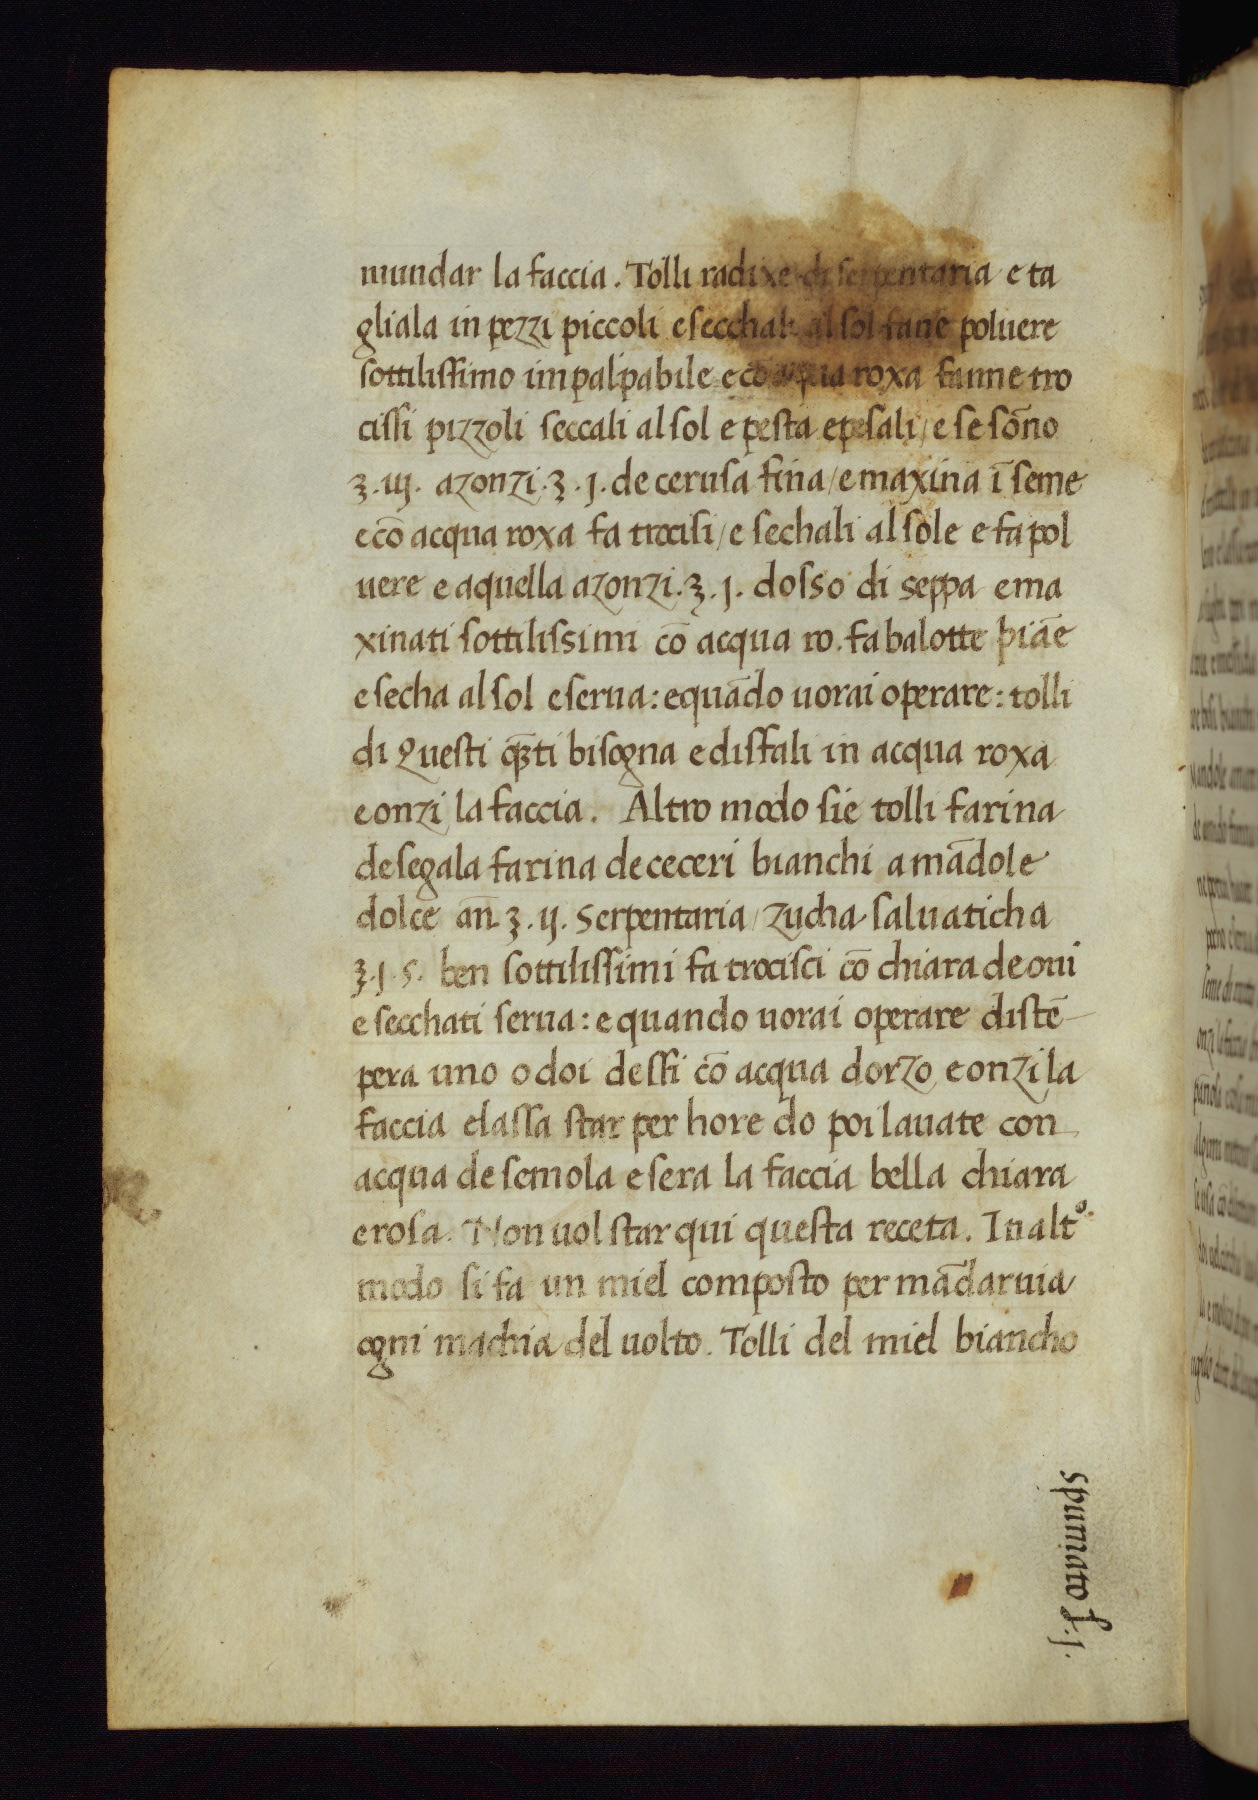 mundar la faccia. Tolli radixe di serpentaria e ta
gliala in pezzi piccoli e secchali al sol fane poluere
sottilissimo impalpabile e cō acqua roxa fanne tro
cissi pizzoli seccali al sol e pesta e pesali / e se sōno
ʒ .iij. azonzi .ʒ .j. de cerusa fina / e maxina ī seme
e cō acqua roxa fa trocisi / e sechali al sole e fa pol
uere e aquella azonzi .ʒ .j. dosso di seppa e ma
xinati sottilissimi cō acqua ro. fa balotte piāe
e secha al sol e serua: e quādo uorai operare: tolli
di Questi qᷓti bisogna e disfali in acqua roxa
e onzi la faccia. Altro modo sie tolli farina
de segala farina de ceceri bianchi amādole
dolce an̄ ʒ .ij. Serpentaria / zucha saluaticha
ʒ .j. s. ben sottilissimi fa trocisci cō chiara de oui
e secchati serua: e quando uorai operare distē
pera uno o doi dessi cō acqua dorzo e onzi la
faccia e lassa star per hore do poi lauate con
acqua de semola e sera la faccia bella chiara
e rosa. Non uol star qui questa receta. In altº.
modo si fa un miel composto per mādar uia
ogni machia del uolto. Tolli del miel biancho
spumato £. j.